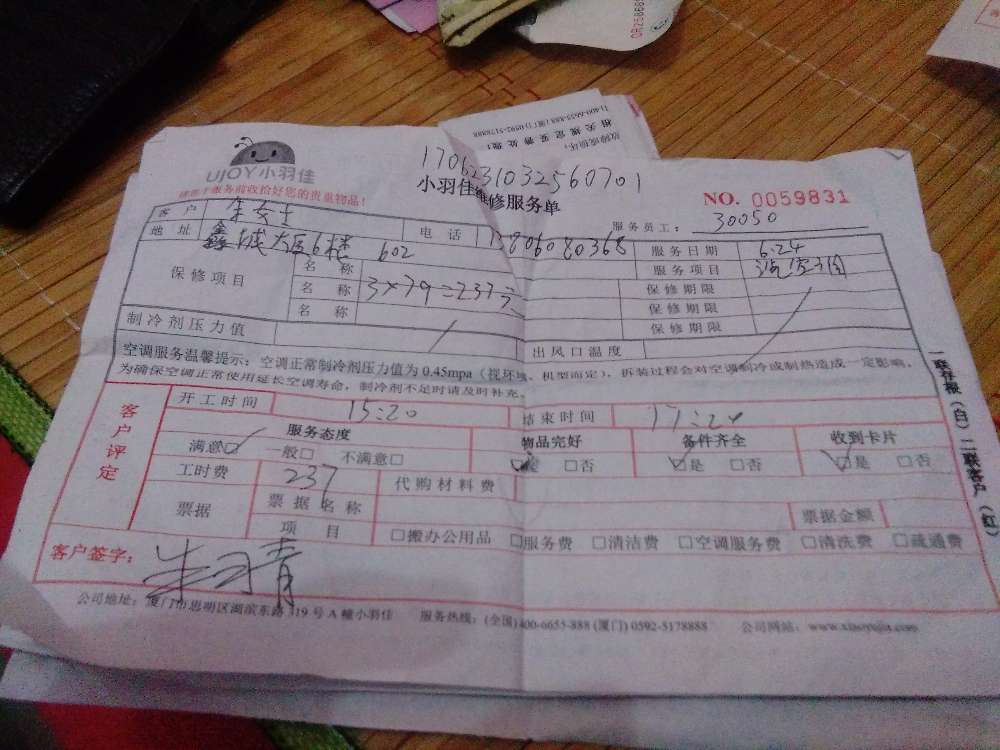 OR25868
11-400-6655-888 (厦门) 0592-5178888
相关规定妥善处理!
故障或损坏
UJOY小羽佳
1706231032560701
小羽佳维修服务单
NO. 0059831
请您于服务前收拾好您的贵重物品!
服务员工: 30050
客户 女士
电话 13806080368
服务日期 6.24
地址 鑫城大厦6楼 602
服务项目
保修项目
名称
保修期限
名称 3×79=237元
保修期限
名称
保修期限
制冷剂压力值
出风口温度
空调服务温馨提示: 空调正常制冷剂压力值为 0.45mpa (视环境、机型而定), 拆装过程会对空调制冷或制热造成一定影响。
为确保空调正常使用延长空调寿命, 制冷剂不足时请及时补充。
客户评定
开工时间 15:20
结束时间 17:20
服务态度
物品完好
备件齐全
收到卡片
满意□ 一般□ 不满意□
□是 □否
□是 □否
□是 □否
工时费 237
代购材料费
票据
票据名称
票据金额
项目
□搬办公用品 □服务费 □清洁费 □空调服务费 □清洗费 □疏通费
客户签字:
一联存根(白) 二联客户(红)
公司地址: 厦门市思明区湖滨东路 319 号 A 幢小羽佳
服务热线: (全国)400-6655-888 (厦门) 0592-5178888
公司网站: www.xiaoyujia.com